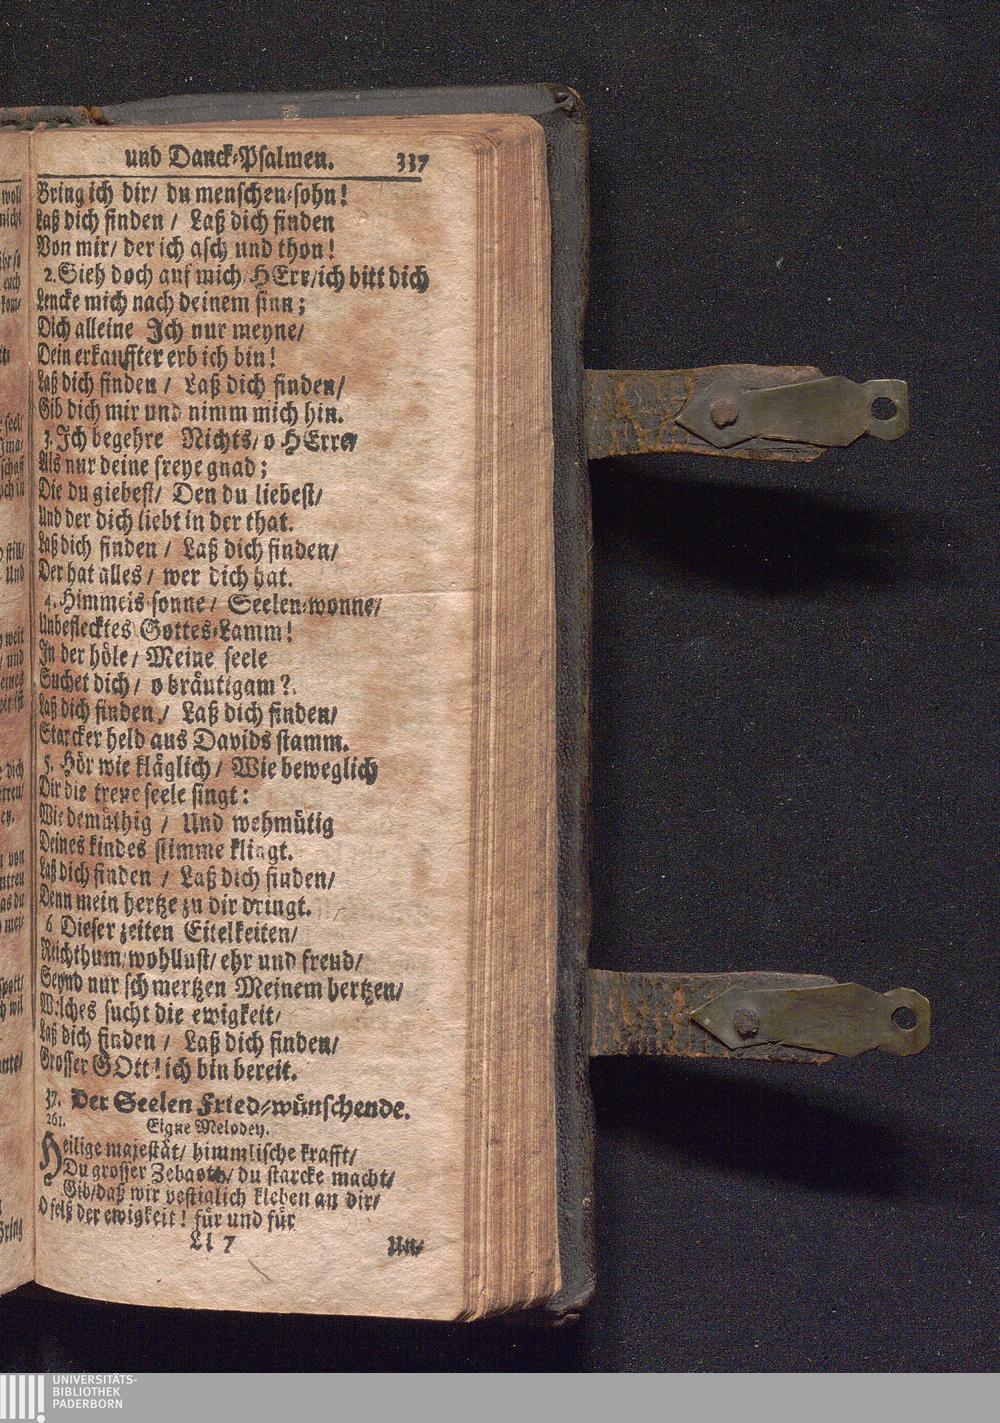 und Danck-Psalmen. 337
Bring ich dir/ du menschen-sohn!
Laß dich finden / Laß dich finden
Von mir/ der ich asch und thon!
2. Sieh doch auf mich/ HErr/ich bitt dich
Lencke mich nach deinem sinn;
Dich alleine Ich nur meyne/
Dein erkauffter erb ich bin!
Laß dich finden / Laß dich finden/
Gib dich mir und nimm mich hin.
3. Ich begehre Nichts/ o HErre/
Als nur deine freye gnad;
Die du giebest/ Den du liebest/
Und der dich liebt in der that.
Laß dich finden / Laß dich finden/
Der hat alles / wer dich hat.
4. Himmels-sonne/ Seelen-wonne/
Unbeflecktes Gottes-Lamm!
In der höle/ Meine seele
Suchet dich/ o bräutigam?
Laß dich finden / Laß dich finden/
Starcker held aus Davids stamm.
5. Hör wie kläglich/ Wie beweglich
Dir die treye seele singt:
Wie demüthig / Und wehmütig
Deines kindes stimme klingt.
Laß dich finden / Laß dich finden/
Denn mein hertze zu dir dringt.
6 Dieser zeiten Eitelkeiten/
Reichthum/ wohllust/ ehr und freud/
Seynd nur schmertzen Meinem hertzen/
Welches sucht die ewigkeit/
Laß dich finden / Laß dich finden/
Grosser GOtt! ich bin bereit.
37. Der Seelen Fried-wünschende.
261. Eigne Melodey.
Heilige majestät/ himmlische krafft/
Du grosser Zebaoth/ du starcke macht/
Gib/daß wir vestiglich kleben an dir/
O felß der ewigkeit! für und für
Ll 7 Un-
UNIVERSITÄTS-
BIBLIOTHEK
PADERBORN